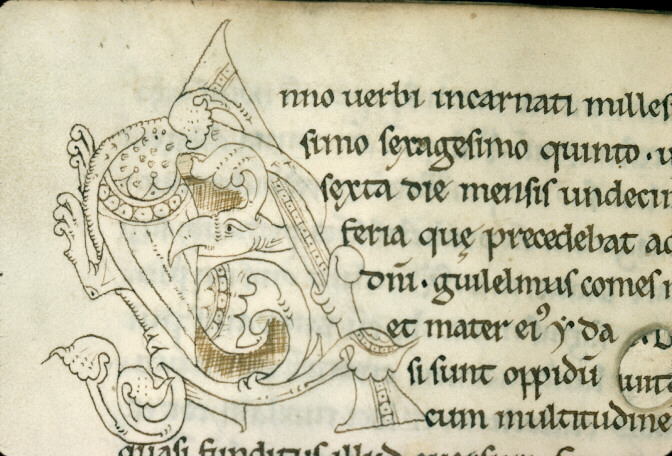 nno uerbi incarnati milles
simo sexagesimo quinto · u
sexta die mensis undecim
feria quę precedebat ad
dn̄i · guilelmus comes n
et mater eiꝰ y da
si sunt oppidū
cum multitudine
quasi funditus illud